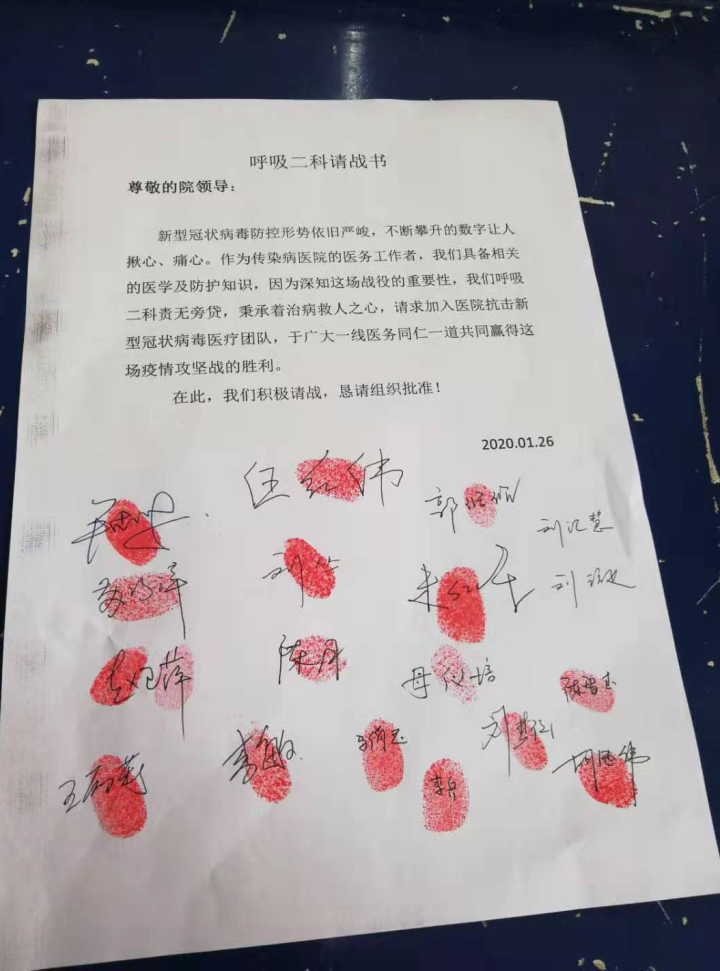 呼吸二科请战书
尊敬的院领导：
新型冠状病毒防控形势依旧严峻，不断攀升的数字让人
揪心、痛心。作为传染病医院的医务工作者，我们具备相关
的医学及防护知识，因为深知这场战役的重要性，我们呼吸
二科责无旁贷，秉承着治病救人之心，请求加入医院抗击新
型冠状病毒医疗团队，于广大一线医务同仁一道共同赢得这
场疫情攻坚战的胜利。
在此，我们积极请战，恳请组织批准！
2020.01.26
刘汇慧
陈丹
母仪培
李敏
李兵